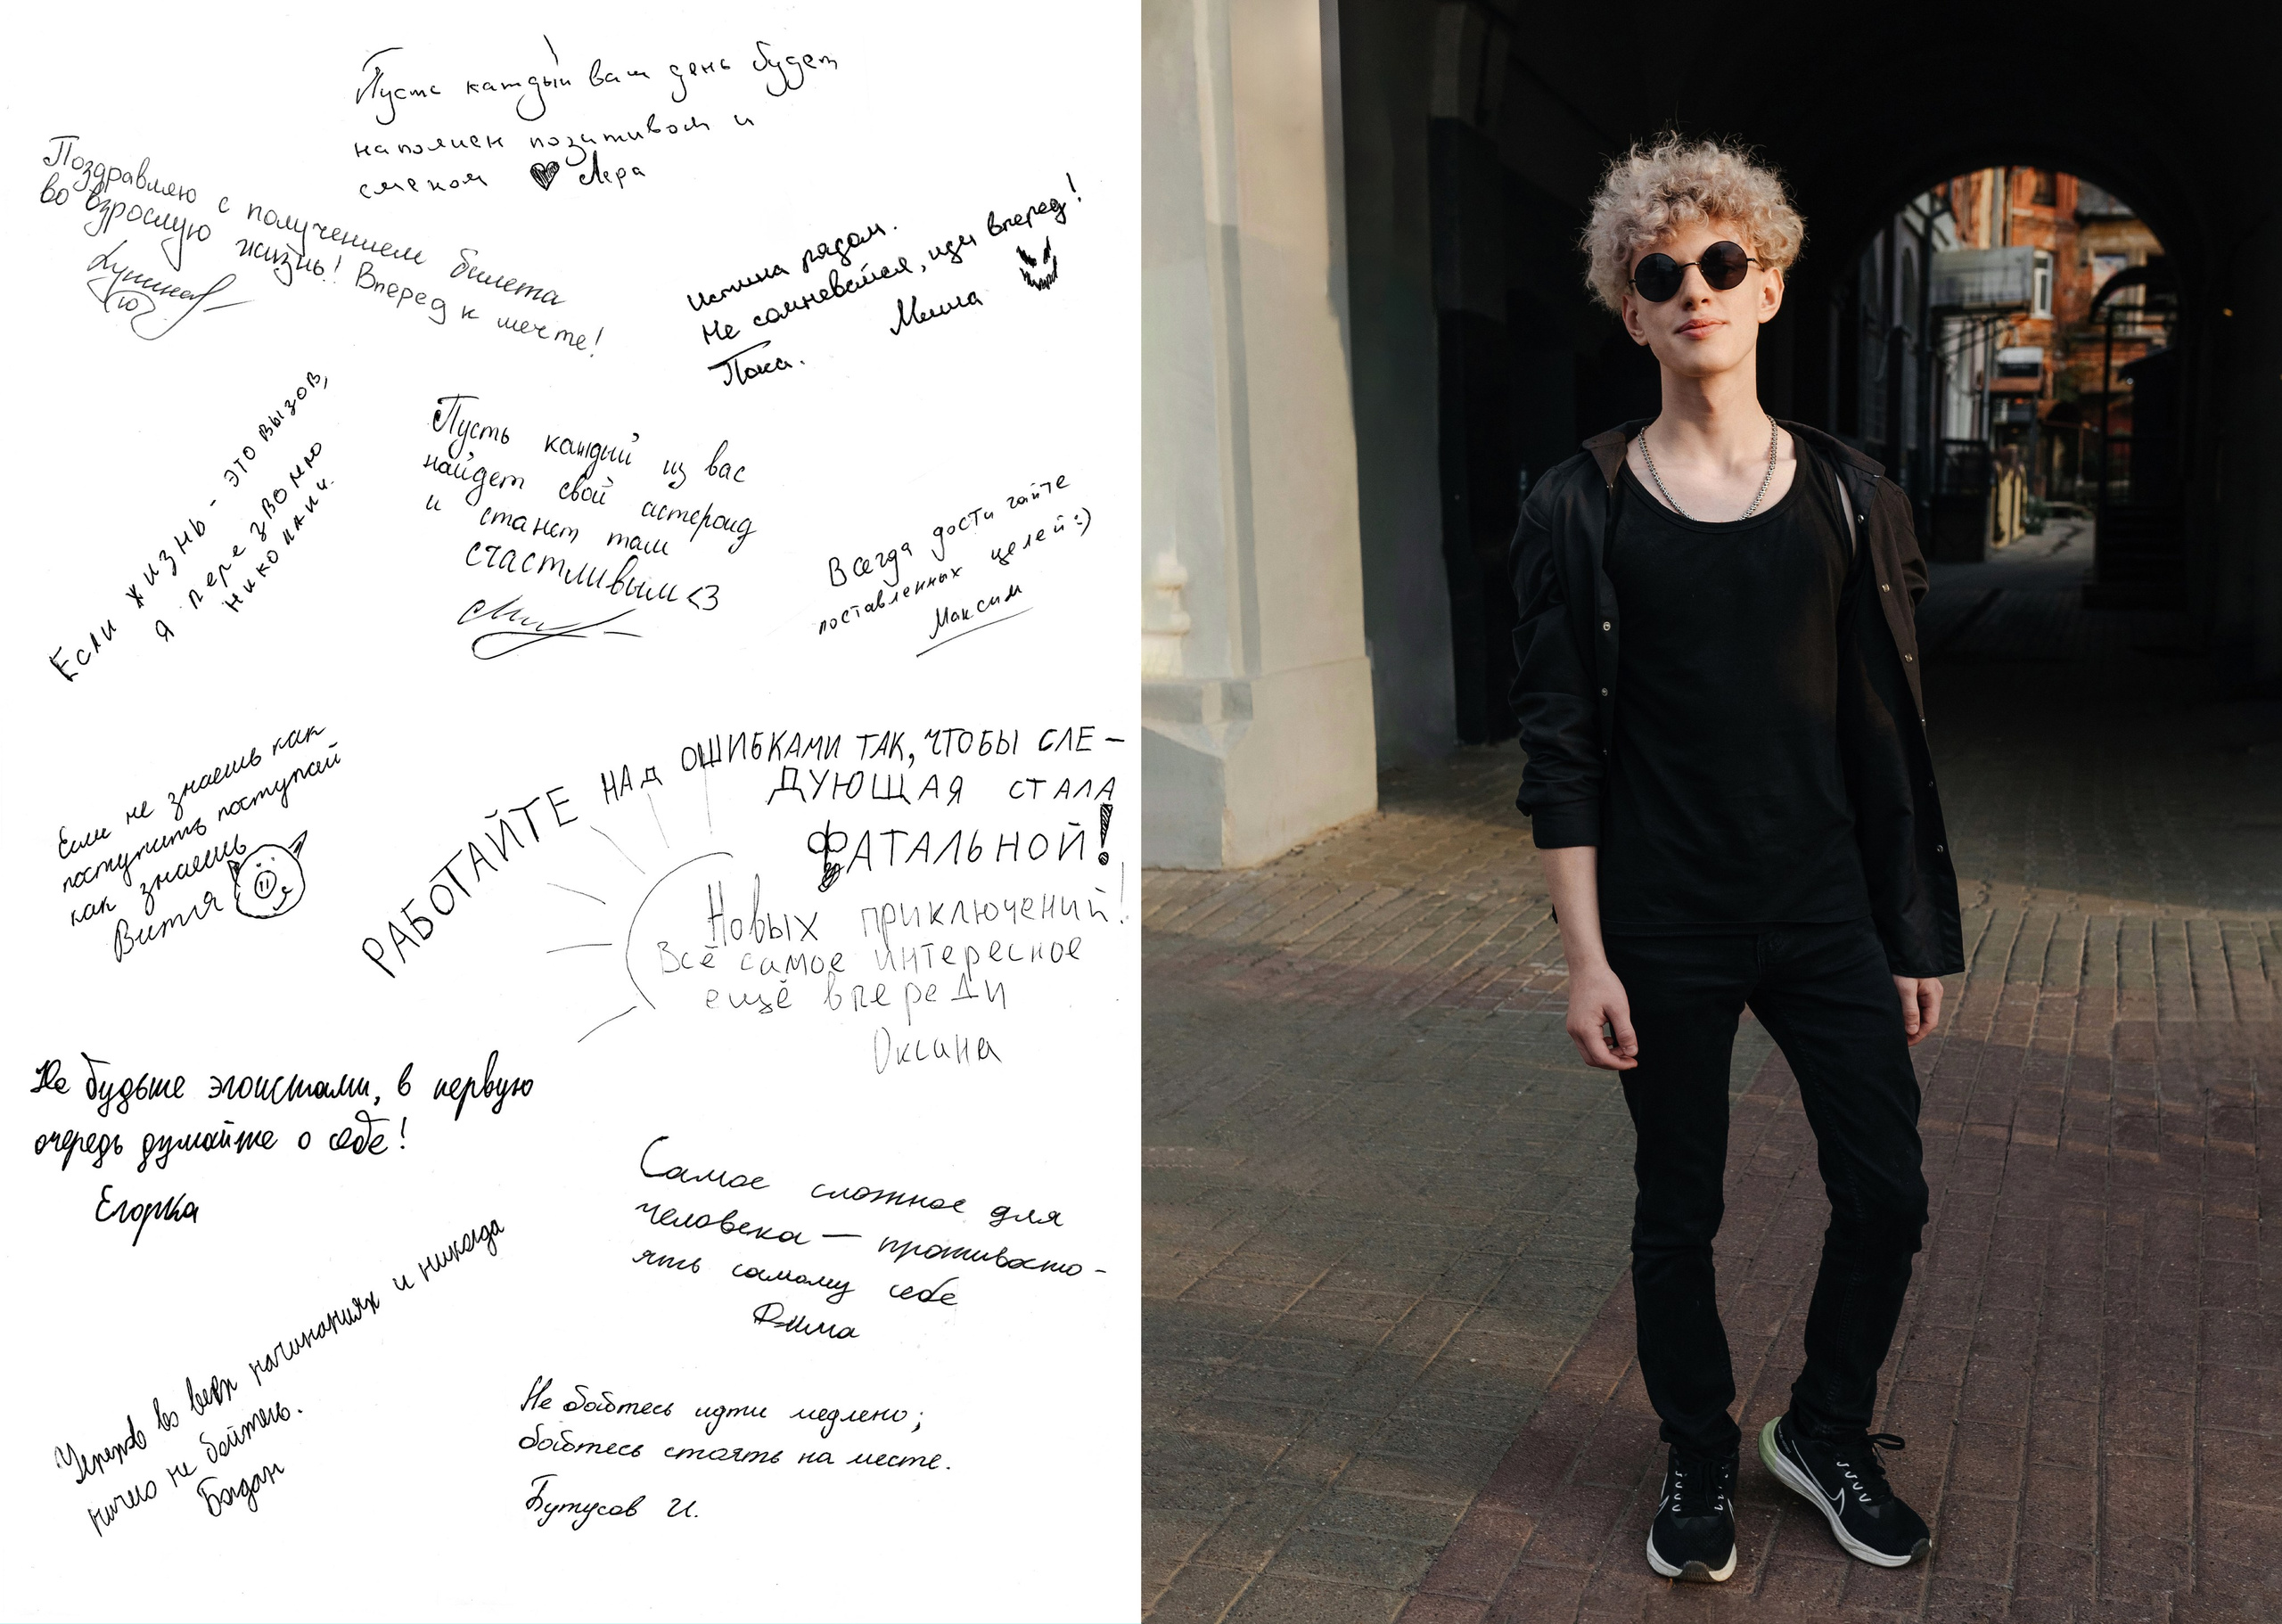 Пусть каждый ваш день будет
наполнен позитивом и
смехом Лера
Поздравляю с получением билета
во взрослую жизнь! Вперед к мечте!
Истина рядом.
Не сомневайся, иди вперед!
Пока. Миша
Если жизнь - это вызов,
я перезвоню
Николаич.
Пусть каждый из вас
найдет свой астероид
и станет там
счастливым <3
Всегда достигайте
поставленных целей :)
Максим
Если не знаешь как
поступить поступай
как знаешь
Витя
РАБОТАЙТЕ НАД ОШИБКАМИ ТАК, ЧТОБЫ СЛЕ-
ДУЮЩАЯ СТАЛА
ФАТАЛЬНОЙ!
Новых приключений!
Всё самое интересное
ещё впереди
Оксана
Не будьте эгоистами, в первую
очередь думайте о себе!
Егорка
Самое сложное для
человека — противосто-
ять самому себе
Дима
Успехов во всех начинаниях и никогда
ничего не бойтесь.
Богдан
Не бойтесь идти медлено;
бойтесь стоять на месте.
Бутусов И.